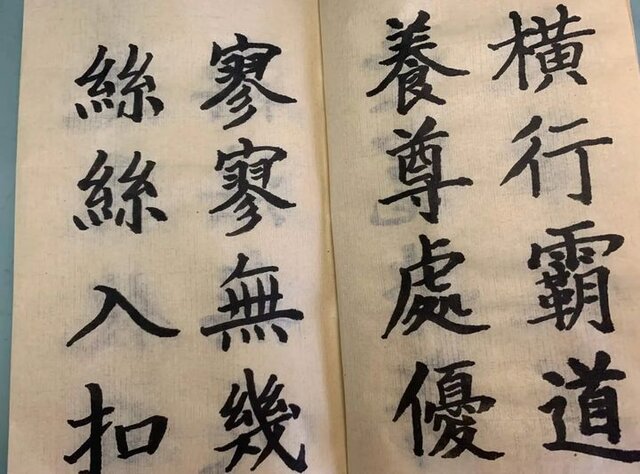 橫行霸道
養尊處優
寥寥無幾
絲絲入扣